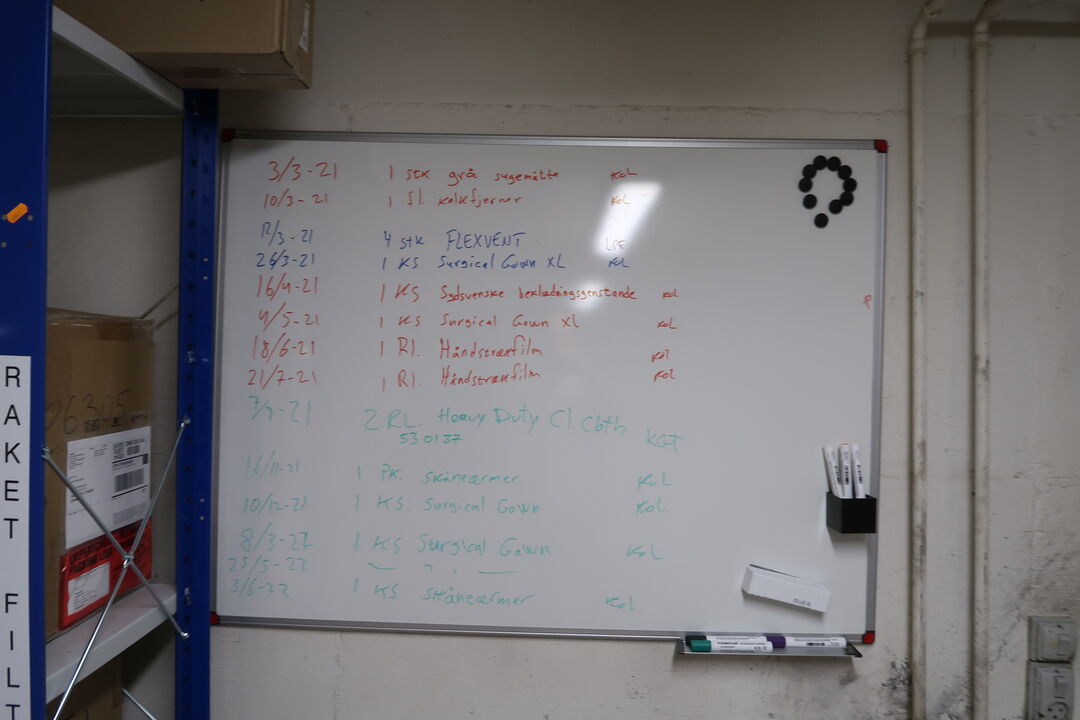 3/3-21 1 stk grå sugemåtte KOL
10/3-21 1 fl. kalkfjerner KOL
12/3-21 4 stk FLEXVENT LPE
26/3-21 1 KS Surgical Gown XL KOL
16/4-21 1 KS Sydsvenske beklædningsgenstande KOL
4/5-21 1 KS Surgical Gown XL KOL
18/6-21 1 Rl. Håndstrækfilm KOL
21/7-21 1 Rl. Håndstrækfilm KOL
7/9-21 2 RL. Heavy Duty Cl. Cloth KGT
530137
16/11-21 1 PK. skåneærmer KOL
10/12-21 1 KS. Surgical Gown KOL
8/3-22 1 KS Surgical Gown KOL
25/5-22
3/6-22 1 KS skåneærmer KOL
RAKET FILT
06305